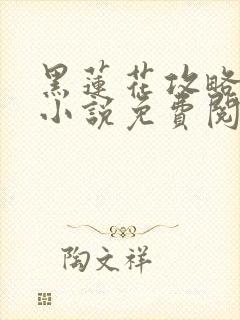 黑蓮花攻略
小說免費閱
陶文祥